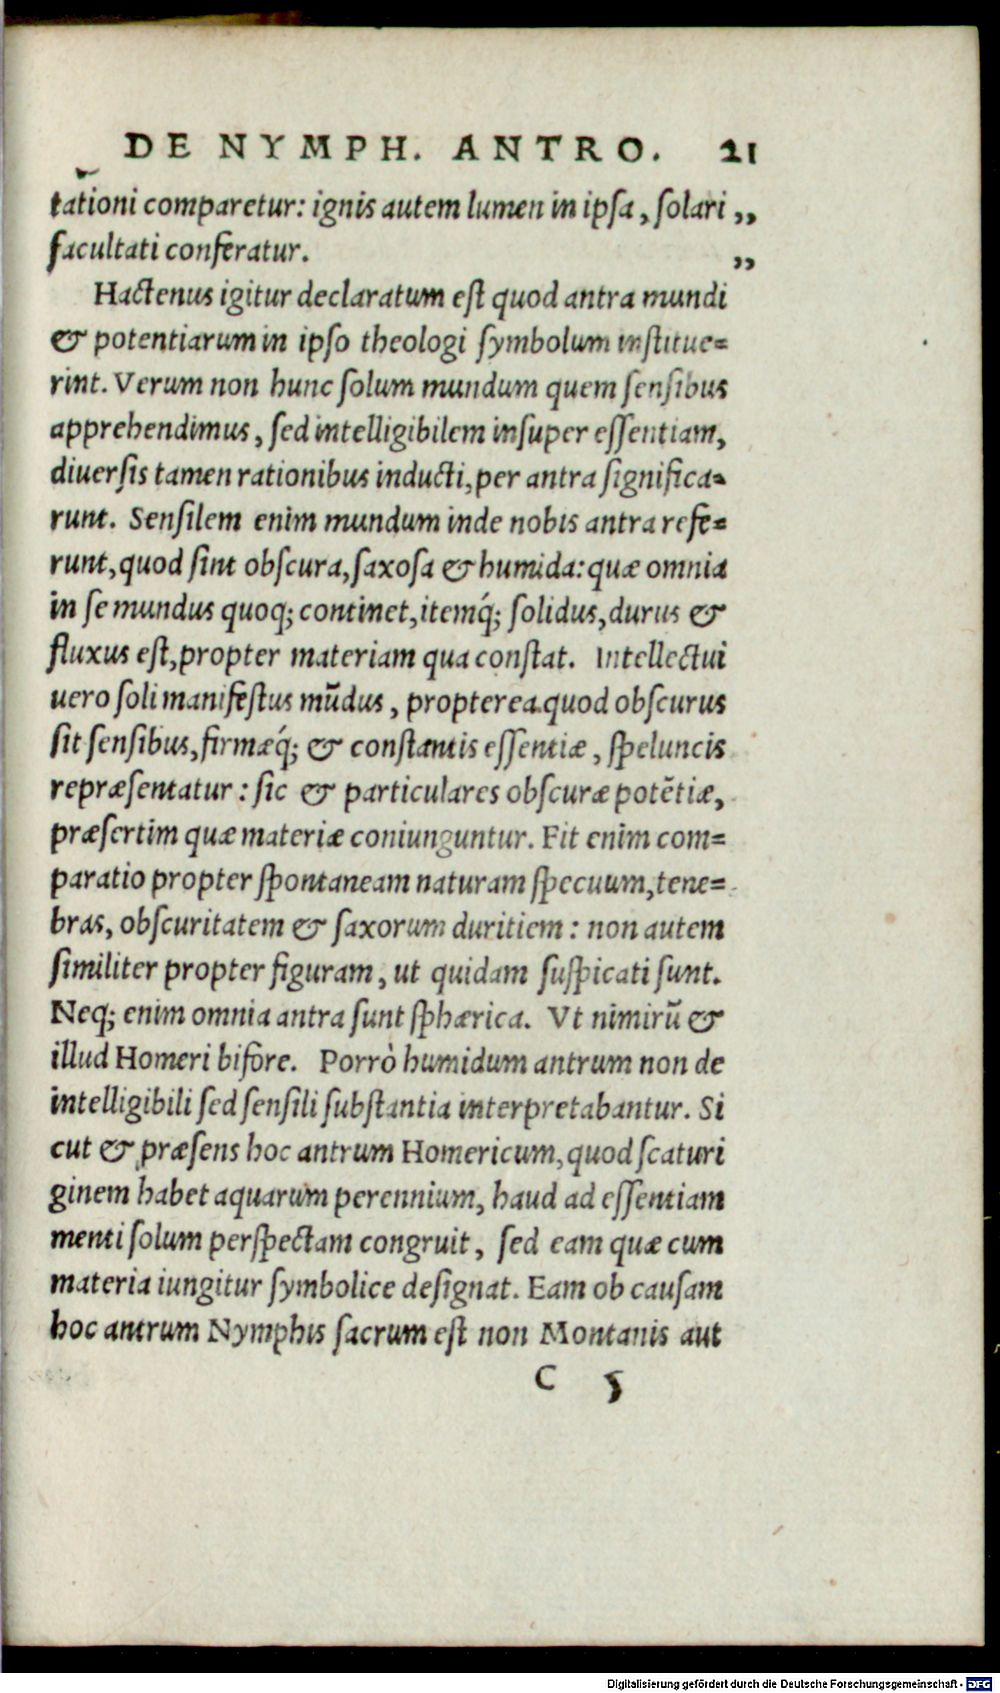 DE NYMPH. ANTRO. 21
tationi comparetur: ignis autem lumen in ipsa, solari „
facultati conferatur. „
Hactenus igitur declaratum est quod antra mundi
& potentiarum in ipso theologi symbolum institue=
rint. Verum non hunc solum mundum quem sensibus
apprehendimus, sed intelligibilem insuper essentiam,
diuersis tamen rationibus inducti, per antra significa=
runt. Sensilem enim mundum inde nobis antra refe=
runt, quod sint obscura, saxosa & humida: quæ omnia
in se mundus quoq; continet, itemq́; solidus, durus &
fluxus est, propter materiam qua constat. Intellectui
uero soli manifestus mũdus, propterea quod obscurus
sit sensibus, firmæq́; & constantis essentiæ, speluncis
repræsentatur: sic & particulares obscuræ potẽtiæ,
præsertim quæ materiæ coniunguntur. Fit enim com=
paratio propter spontaneam naturam specuum, tene=
bras, obscuritatem & saxorum duritiem: non autem
similiter propter figuram, ut quidam suspicati sunt.
Neq; enim omnia antra sunt sphærica. Vt nimirũ &
illud Homeri bifore. Porrò humidum antrum non de
intelligibili sed sensili substantia interpretabantur. Si
cut & præsens hoc antrum Homericum, quod scaturi
ginem habet aquarum perennium, haud ad essentiam
menti solum perspectam congruit, sed eam quæ cum
materia iungitur symbolice designat. Eam ob causam
hoc antrum Nymphis sacrum est non Montanis aut
C 5
Digitalisierung gefördert durch die Deutsche Forschungsgemeinschaft - DFG